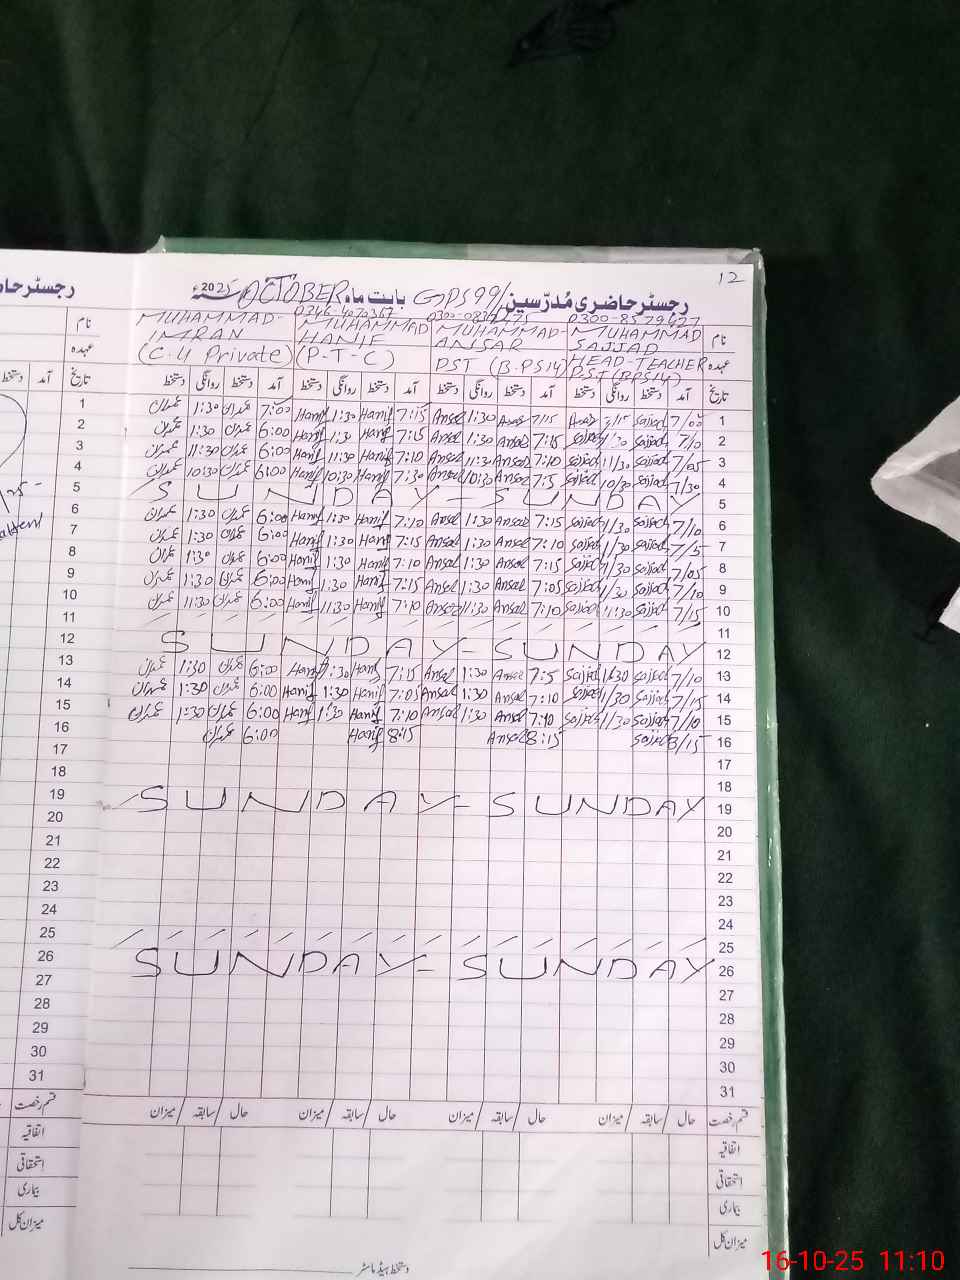 12
رجسٹر حاضری مُدرّسین GPS 99/ بابت ماہ OCTOBER سنہ 2025ء
نام MUHAMMAD SAJJAD 0300-8579427 MUHAMMAD- ANSAR MUHAMMAD HANIF 0346-4070367 MUHAMMAD- IMRAN
عہدہ HEAD-TEACHER PST (BPS14) PST (B.PS14) (P-T-C) (C.U Private)
تاریخ آمد دستخط روانگی دستخط آمد دستخط روانگی دستخط آمد دستخط روانگی دستخط آمد دستخط روانگی دستخط
1 7/00 Sajjad 7/15 Ansar 1:30 Ansar 7:15 Hanif 1:30 Hanif 7:00 عمران 1:30 عمران
2 Sajjad Sajjad 7:15 Ansar 1:30 Ansar 7:15 Hanif 1:30 Hanif 6:00 عمران 1:30 عمران
3 7/05 Sajjad 11/30 Sajjad 7:10 Ansar 11:30 Ansar 7:10 Hanif 11:30 Hanif 6:00 عمران 11:30 عمران
4 7/30 Sajjad 10/30 Sajjad Ansar 10:30 Ansar 7:30 Hanif 10:30 Hanif 6:00 عمران 10:30 عمران
5 SUNDAY-SUNDAY
6 7/10 Sajjad 1/30 Sajjad 7:15 Ansar 1:30 Ansar 7:10 Hanif 1:30 Hanif 6:00 عمران 1:30 عمران
7 Sajjad 1/30 Sajjad 7:10 Ansar 1:30 Ansar 7:15 Hanif 1:30 Hanif 6:00 عمران 1:30 عمران
8 7/05 Sajjad 1/30 Sajjad 7:15 Ansar 1:30 Ansar 7:10 Hanif 1:30 Hanif 6:00 عمران 1:30 عمران
9 7/10 Sajjad 1/30 Sajjad 7:05 Ansar 1:30 Ansar 7:15 Hanif 1:30 Hanif 6:00 عمران 1:30 عمران
10 7/15 Sajjad 11:30 Sajjad 7:10 Ansar 11:30 Ansar 7:10 Hanif 11:30 Hanif 6:00 عمران 11:30 عمران
11
12 SUNDAY-SUNDAY
13 7/10 Sajjad Sajjad 7:5 Ansar 1:30 Ansar 7:15 Hanif Hanif 6:00 عمران 1:30 عمران
14 7/15 Sajjad 1/30 Sajjad 7:10 Ansar 1:30 Ansar 7:05 Hanif 1:30 Hanif 6:00 عمران 1:30 عمران
15 7/10 Sajjad 1/30 Sajjad 7:10 Ansar 1:30 Ansar 7:10 Hanif 1:30 Hanif 6:00 عمران 1:30 عمران
16 8/15 Sajjad 8:15 Ansar 8:15 Hanif 6:00 عمران
17
18
19 SUNDAY-SUNDAY
20
21
22
23
24
25
26 SUNDAY-SUNDAY
27
28
29
30
31
قسم رخصت حال / سابقہ / میزان حال / سابقہ / میزان حال / سابقہ / میزان حال / سابقہ / میزان
اتفاقیہ
استحقاقی
بیماری
میزان کل
دستخط ہیڈ ماسٹر
رجسٹر حا
نام
عہدہ
تاریخ آمد دستخط
1
2
3
4
5
6
7
8
9
10
11
12
13
14
15
16
17
18
19
20
21
22
23
24
25
26
27
28
29
30
31
قسم رخصت
اتفاقیہ
استحقاقی
بیماری
میزان کل
16-10-25 11:10